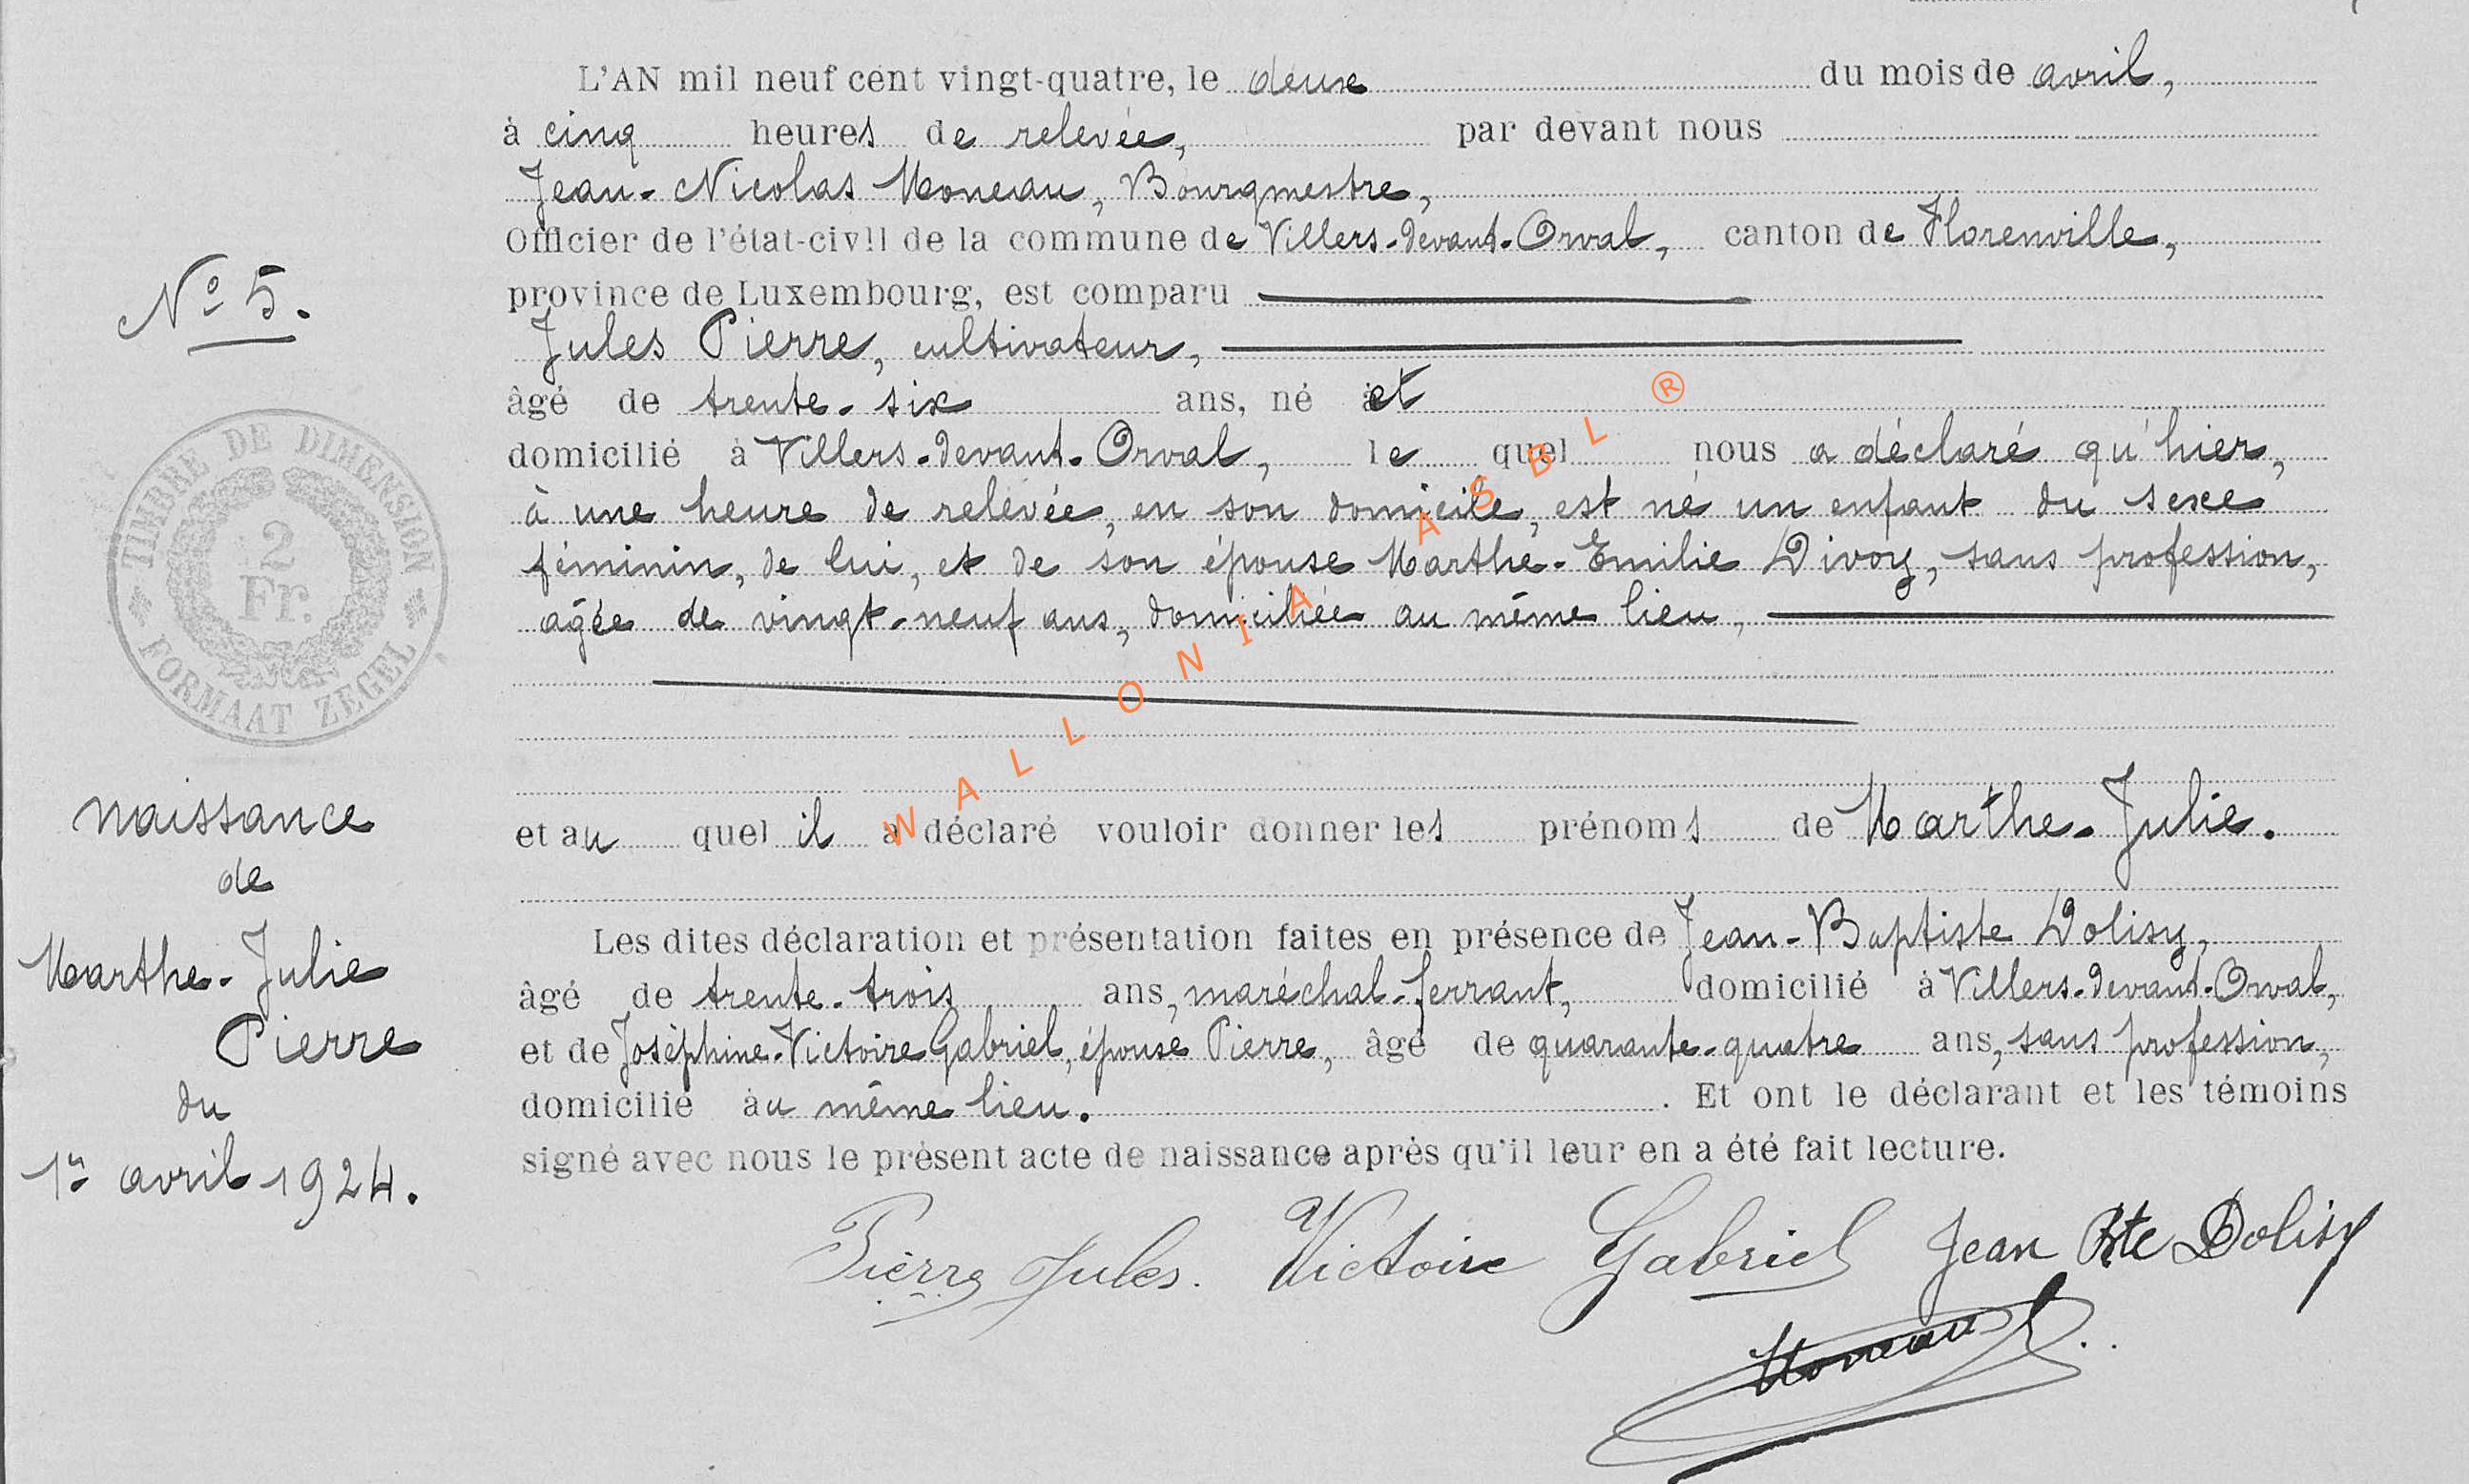 L'AN mil neuf cent vingt-quatre, le deux du mois de avril,
à cinq heures de relevée, par devant nous
Jean-Nicolas Moneau, Bourgmestre,
Officier de l'état-civil de la commune de Villers-devant-Orval, canton de Florenville,
province de Luxembourg, est comparu
Jules Pierre, cultivateur,
âgé de trente-six ans, né et
domicilié à Villers-devant-Orval, le quel nous a déclaré qu'hier,
à une heure de relevée, en son domicile, est né un enfant du sexe
féminin, de lui, et de son épouse Marthe-Emilie Divoy, sans profession,
agée de vingt-neuf ans, domiciliée au même lieu,
et au quel il a déclaré vouloir donner les prénoms de Marthe-Julie.
Les dites déclaration et présentation faites en présence de Jean-Baptiste Dolisy,
âgé de trente-trois ans, maréchal-ferrant, domicilié à Villers-devant-Orval,
et de Joséphine-Victoire Gabriel, épouse Pierre, âgé de quarante-quatre ans, sans profession,
domicilié au même lieu. Et ont le déclarant et les témoins
signé avec nous le présent acte de naissance après qu'il leur en a été fait lecture.
Pierre Jules. Victoire Gabriel Jean Bte Dolisy
Moneau
N° 5.
TIMBRE DE DIMENSION
2
Fr.
FORMAAT ZEGEL
Naissance
de
Marthe-Julie
Pierre
du
1er avril 1924.
WALLONIA ASBL ®